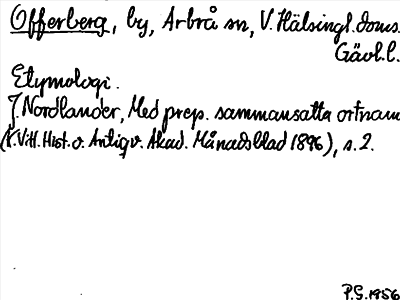 Offerberg, by, Arbrå sn, V. Hälsingl. doms.
Gävl. l.
Etymologi.
J. Nordlander, Med prep. sammansatta ortnamn
(K. Vitt. Hist. o. Antiqv. Akad. Månadsblad 1896), s. 2.
P.G. 1956